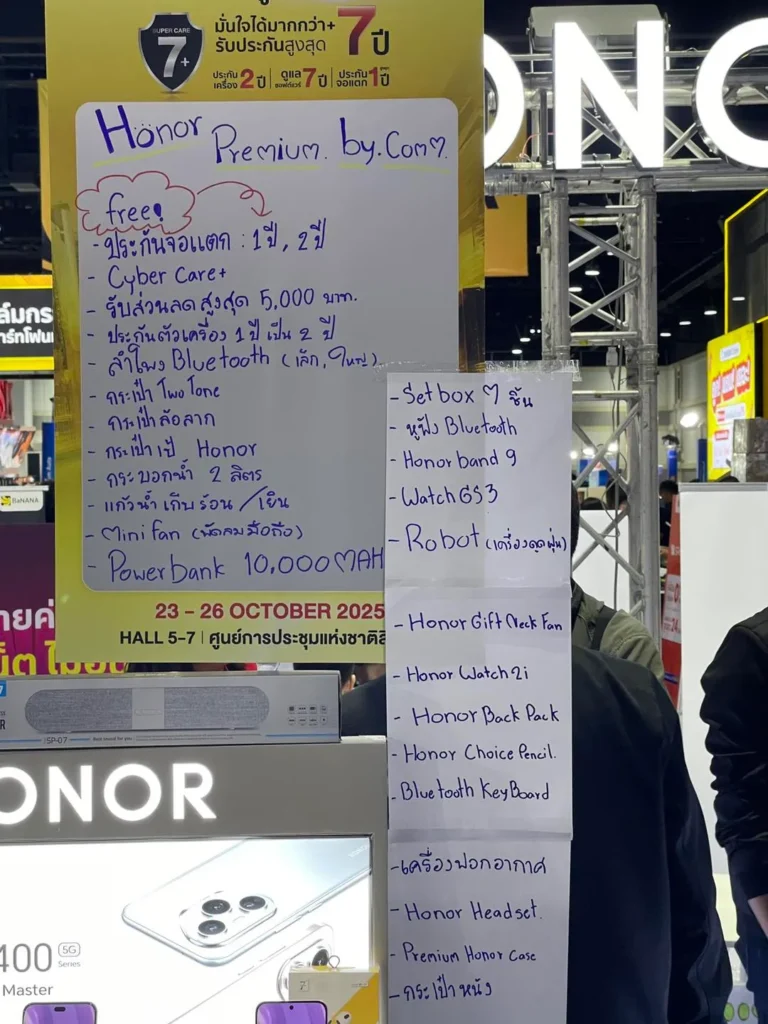 SUPER CARE
7+
มั่นใจได้มากกว่า+
รับประกันสูงสุด 7 ปี
ประกันเครื่อง 2 ปี | ดูแลซอฟต์แวร์ 7 ปี | ประกันจอแตก 1 ปี
ONO
Honor Premium. by.Com7.
free!
- ประกันจอแตก : 1 ปี, 2 ปี
- Cyber Care+
- รับส่วนลดสูงสุด 5,000 บาท.
- ประกันตัวเครื่อง 1 ปี เป็น 2 ปี
- ลำโพง Bluetooth (เล็ก, ใหญ่)
- กระเป๋า Two Tone
- กระเป๋าล้อลาก
- กระเป๋าเป้ Honor
- กระบอกน้ำ 2 ลิตร
- แก้วน้ำเก็บร้อน/เย็น
- Mini fan (พัดลมมือถือ)
- Powerbank 10,000 MAH
23 - 26 OCTOBER 2025
HALL 5-7 | ศูนย์การประชุมแห่งชาติสิ
- Setbox 7 ชิ้น
- หูฟัง Bluetooth
- Honor band 9
- Watch GS3
- Robot (เครื่องดูดฝุ่น)
- Honor Gift Neck Fan
- Honor Watch 2i
- Honor Back Pack
- Honor Choice Pencil.
- Bluetooth KeyBoard
- เครื่องฟอกอากาศ
- Honor Headset.
- Premium Honor Case
- กระเป๋าหนัง
BaNANA
SP-07
ONOR
400 5G
Series
Master